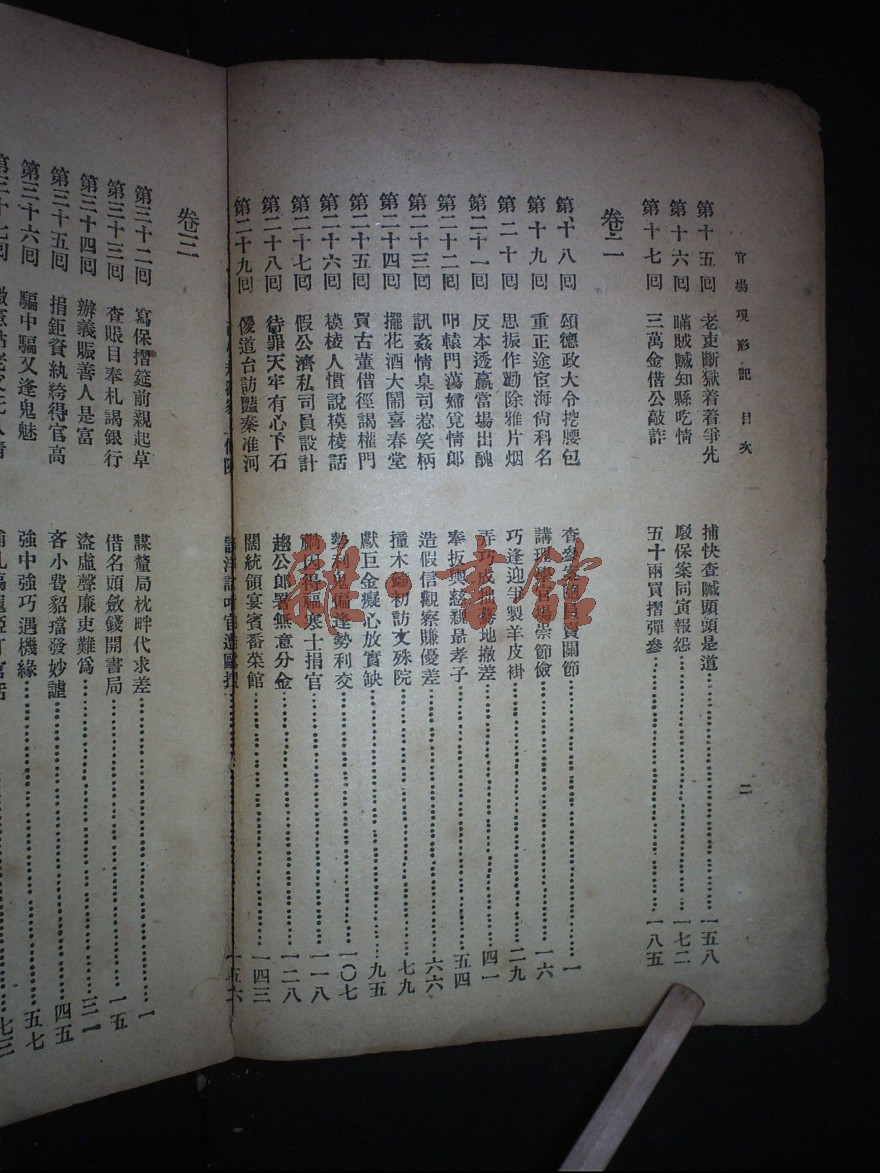 官場現形記 目次 二
第十五回 老吏斷獄着着爭先 捕快查贓頭頭是道……一五八
第十六回 瞞賊贓知縣吃情 駁保案同寅報怨……一七二
第十七回 三萬金借公敲詐 五十兩買摺彈參……一八五
卷二
第十八回 頌德政大令挖腰包 查參案員賣關節……一
第十九回 重正途宦海尚科名 講理官場崇節儉……一六
第二十回 思振作勸除雅片烟 巧逢迎爭製羊皮褂……二九
第二十一回 反本透贏當場出醜 弄巧成拙驀地撤差……四一
第二十二回 叩轅門蕩婦覓情郎 奉板輿慈親勗孝子……五四
第二十三回 訊姦情臬司惹笑柄 造假信觀察賺優差……六六
第二十四回 擺花酒大鬧喜春堂 撞木鐘初訪文殊院……七九
第二十五回 買古董借徑謁權門 獻巨金癡心放實缺……九五
第二十六回 模棱人慣說模棱話 勢利鬼偏逢勢利交……一〇七
第二十七回 假公濟私司員設計 禍因得福寒士捐官……一一八
第二十八回 待罪天牢有心下石 趨公郎署無意分金……一二八
第二十九回 傻道台訪豔秦淮河 闊統領宴賓番菜館……一四三
一五六
卷三
第三十二回 寫保摺筵前親起草 謀釐局枕畔代求差……一
第三十三回 查賬目奉札謁銀行 借名頭斂錢開書局……一五
第三十四回 辦義賑善人是富 盜虛聲廉吏難爲……三一
第三十五回 捐鉅資紈絝得官高 吝小費貂璫發妙謔……四五
第三十六回 騙中騙又逢鬼魅 強中強巧遇機緣……五七
第三十七回……七三
雜·書館